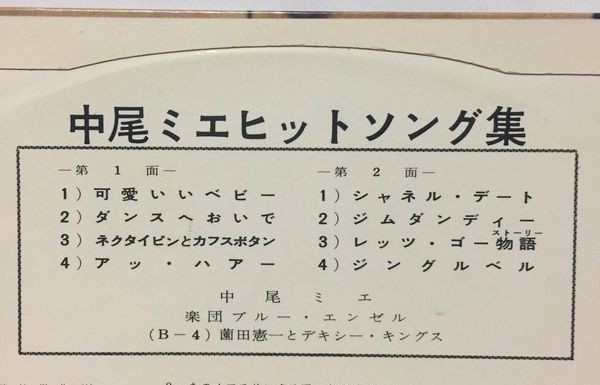 中尾ミエヒットソング集
―第1面―
1)可愛いいベビー
2)ダンスへおいで
3)ネクタイピンとカフスボタン
4)アッ・ハアー
―第2面―
1)シャネル・デート
2)ジムダンディー
ストーリー
3)レッツ・ゴー物語
4)ジングルベル
中尾ミエ
楽団ブルー・エンゼル
(B−4)薗田憲一とデキシー・キングス